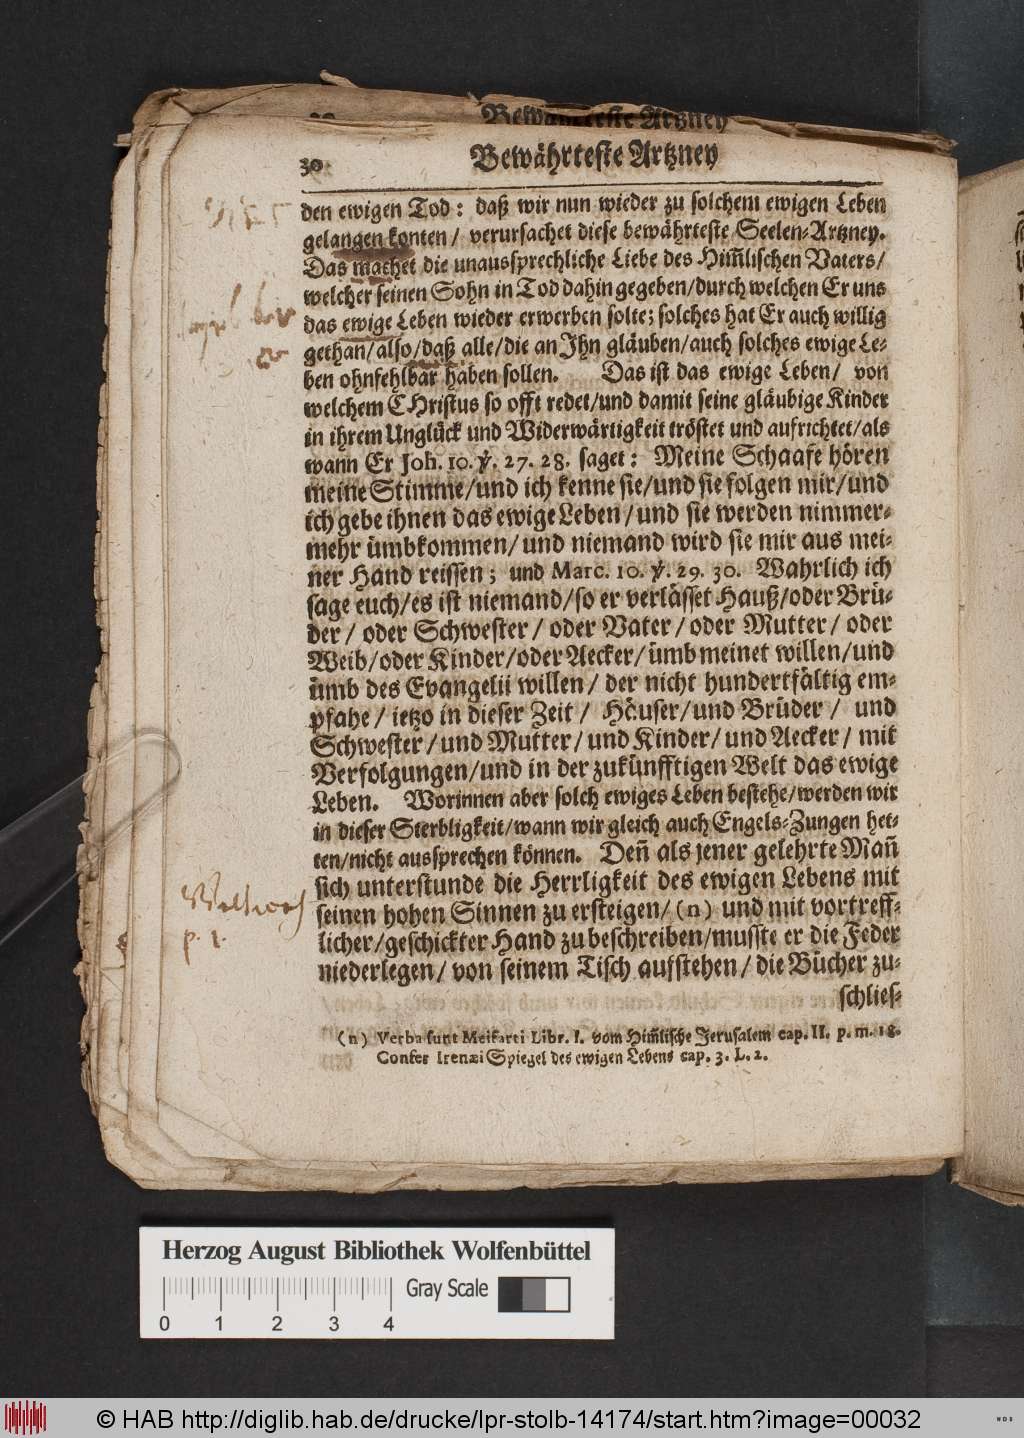 Bewährteste Artzney
30 Bewährteste Artzney
den ewigen Tod: daß wir nun wieder zu solchem ewigen Leben
gelangen konten/ verursachet diese bewährteste Seelen-Artzney.
Das machet die unaussprechliche Liebe des Him̃lischen Vaters/
welcher seinen Sohn in Tod dahin gegeben/durch welchen Er uns
das ewige Leben wieder erwerben solte; solches hat Er auch willig
gethan/also/daß alle/die an Ihn gläuben/auch solches ewige Le-
ben ohnfehlbar haben sollen. Das ist das ewige Leben/ von
welchem CHristus so offt redet/und damit seine gläubige Kinder
in ihrem Unglück und Widerwärtigkeit tröstet und aufrichtet/als
wann Er Joh. 10. ℣. 27. 28. saget: Meine Schaafe hören
meine Stimme/und ich kenne sie/und sie folgen mir/und
ich gebe ihnen das ewige Leben/und sie werden nimmer-
mehr ümbkommen/und niemand wird sie mir aus mei-
ner Hand reissen; und Marc. 10. ℣. 29. 30. Wahrlich ich
sage euch/es ist niemand/so er verlässet Hauß/oder Brü-
der/ oder Schwester/ oder Vater/ oder Mutter/ oder
Weib/oder Kinder/oder Aecker/ümb meinet willen/und
ümb des Evangelii willen/ der nicht hundertfältig em-
pfahe/ ietzo in dieser Zeit/ Häuser/und Brüder/ und
Schwester/und Mutter/und Kinder/und Aecker/ mit
Verfolgungen/und in der zukünfftigen Welt das ewige
Leben. Worinnen aber solch ewiges Leben bestehe/werden wir
in dieser Sterbligkeit/wann wir gleich auch Engels-Zungen het-
ten/nicht aussprechen können. Deñ als jener gelehrte Mañ
sich unterstunde die Herrligkeit des ewigen Lebens mit
seinen hohen Sinnen zu ersteigen/(n) und mit vortreff-
licher/geschickter Hand zu beschreiben/musste er die Feder
niederlegen/von seinem Tisch aufstehen/die Bücher zu-
schlies-
(n) Verba sunt Meifarti Libr. I. vom Him̃lische Jerusalem cap. II. p. m. 18.
Confer Irenæi Spiegel des ewigen Lebens cap. 3. L. 2.
p. 1.
Herzog August Bibliothek Wolfenbüttel
Gray Scale
0 1 2 3 4
© HAB http://diglib.hab.de/drucke/lpr-stolb-14174/start.htm?image=00032